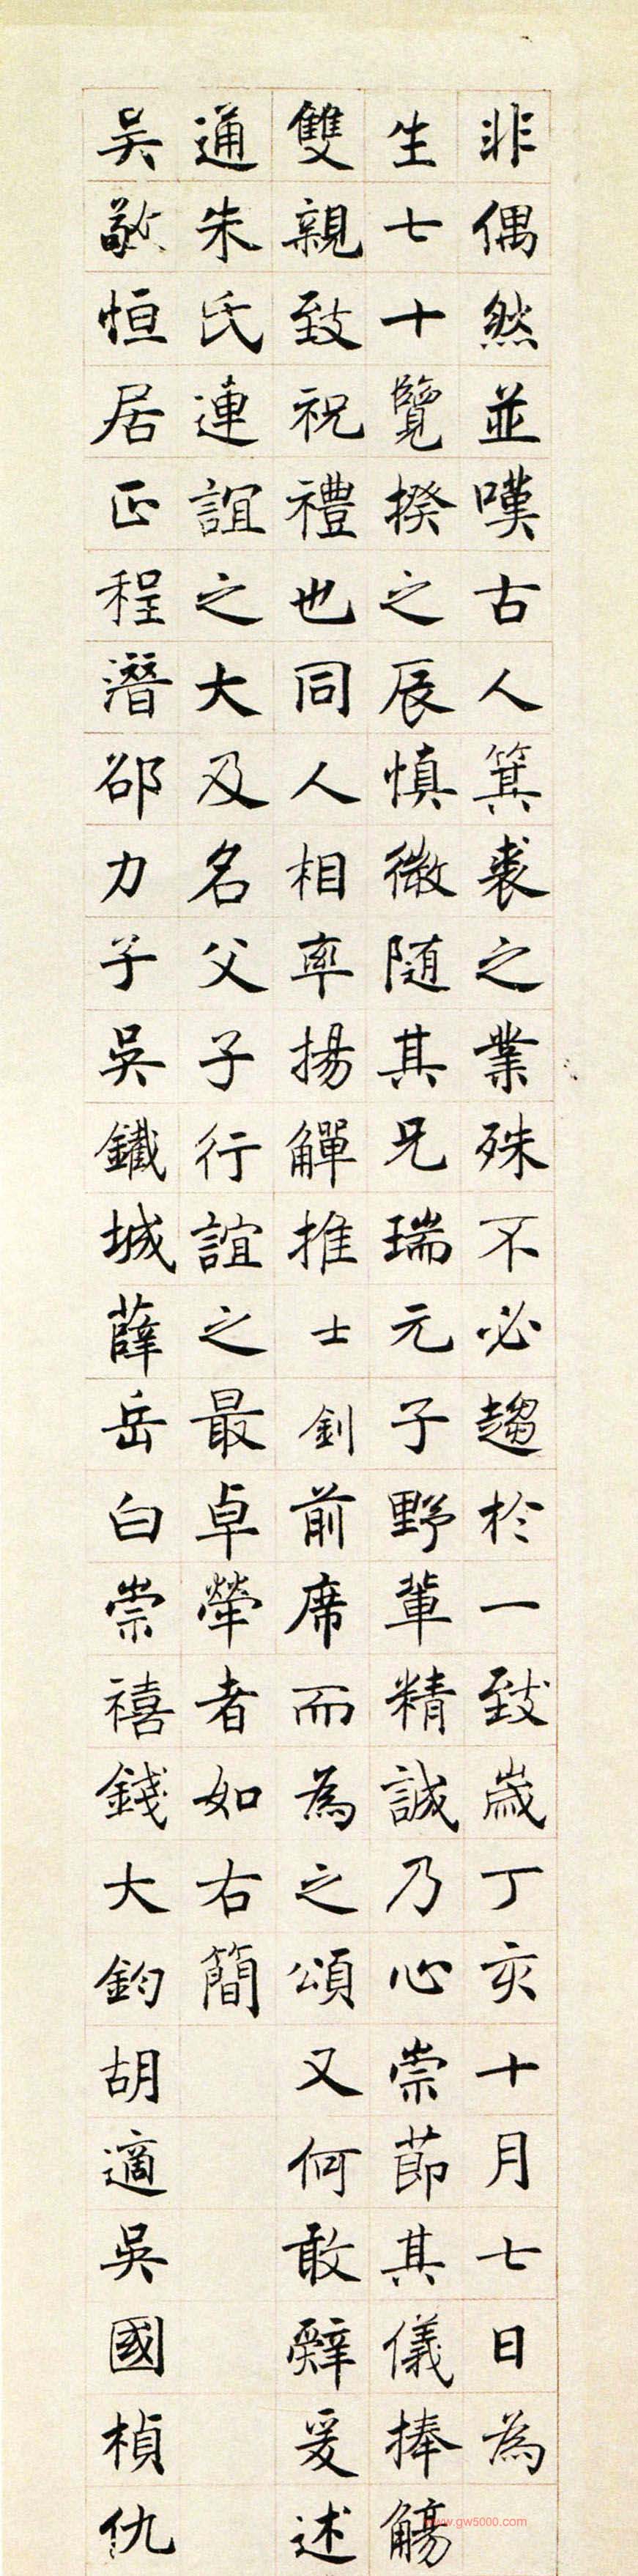 非偶然並嘆古人箕裘之業殊不必趨於一致歲丁亥十月七日為
生七十覽揆之辰慎微随其兄瑞元子野輩精誠乃心崇節其儀捧觴
雙親致祝禮也同人相率揚觶推士釗前席而為之頌又何敢辭爰述
通朱氏連誼之大及名父子行誼之最卓犖者如右簡
吴敬恒居正程潛邵力子吳鐵城薛岳白崇禧錢大鈞胡適吳國楨仇
www.gw5000.com